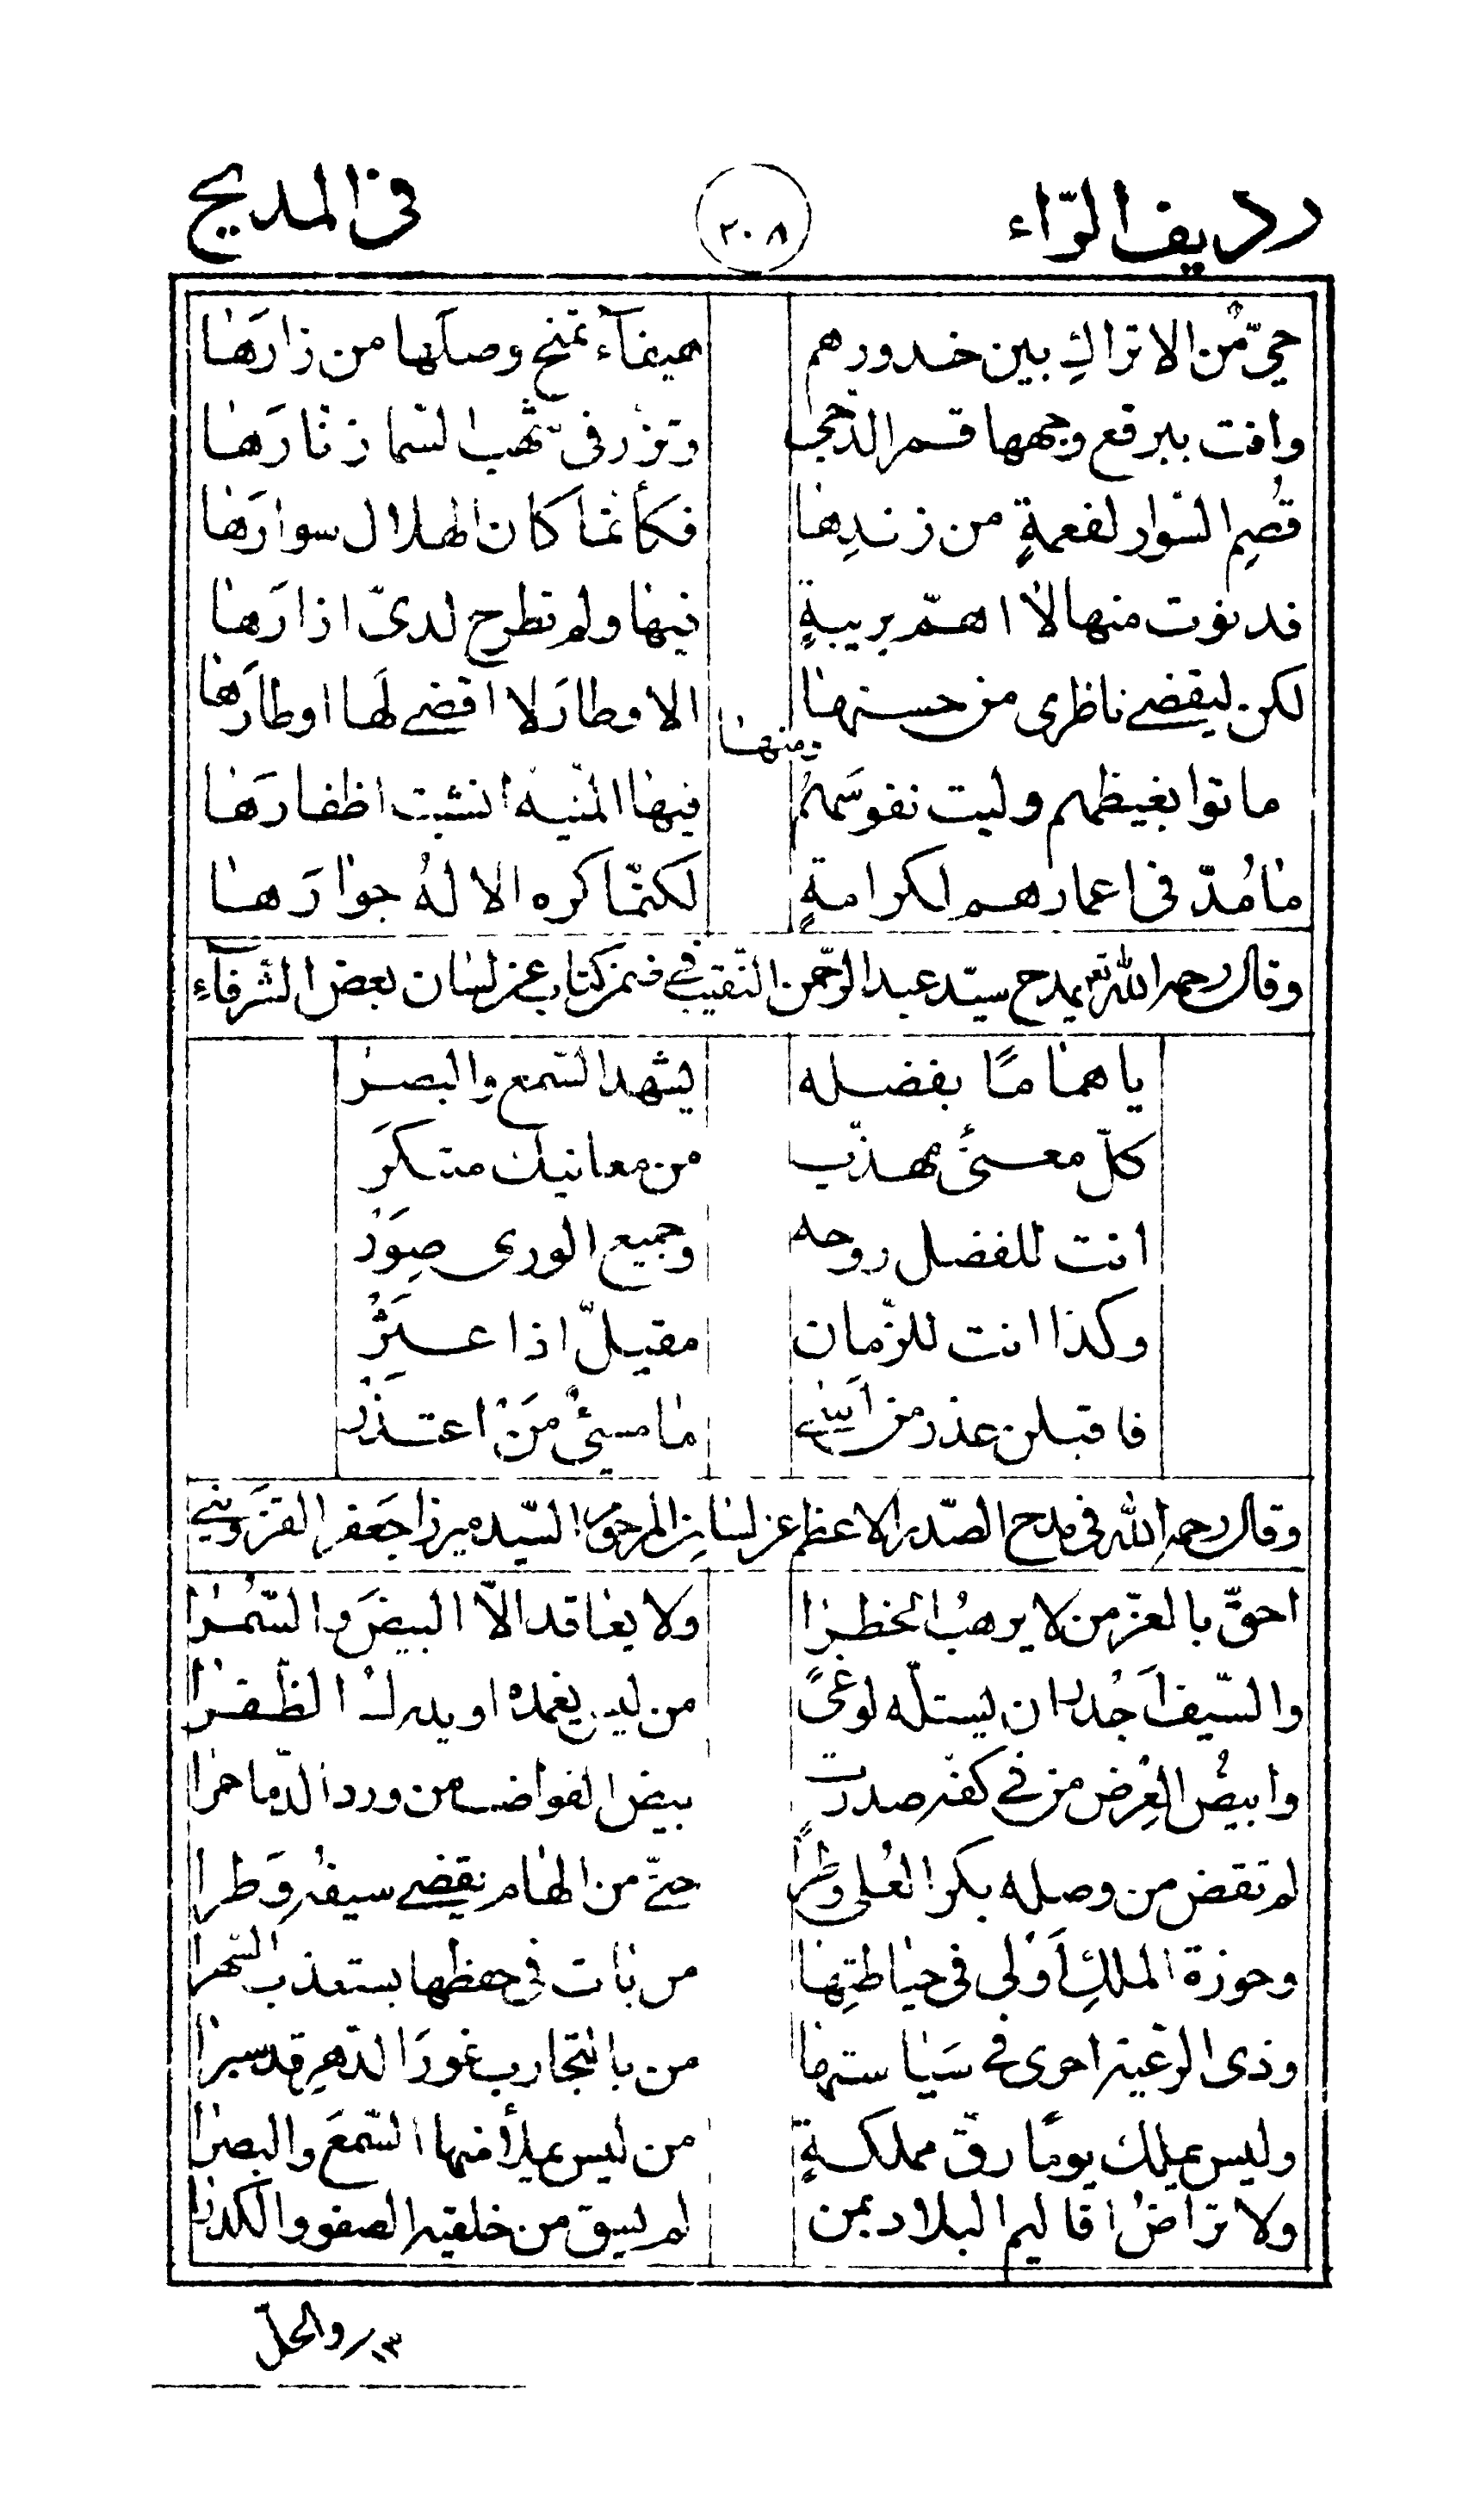 رديف الرّاء ٣٠٨ في المديح
حيّ من الاتراك بين خدورهم هيفآء تمنح وصلها من زارَها
وافت ببرقع وجهها قمر الدّجى وتزرّ في شهب السّما زنّارَها
قُصِم السّوار لفعمةٍ من زندِها فكأنّما كان الهلال سوارَها
فدنوت منها لا اهمّ بريبةٍ فيها ولم تطرح لديّ ازارَها
لكن ليقضي ناظرى من حسنها الاوطارَ لا اقضي لَها اوطارَها
منها
ماتوا بغيظهم وليت نفوسَهُمْ فيها المنيّة انشبت اظفارَها
ما مُدّ في اعمارهم لكرامةٍ لكنّما كره الالهُ جوارَها
وقال رحمه الله تع يمدح سيّد عبد الرّحمن النّقيب في ضمن كتاب عن لسان بعض الشرفآءِ
يا همامًا بفضله يشهد السّمع والبصرْ
كلّ معنىً مهذّب من معانيك مبتكَرْ
انت للفضل روحه وجميع الورى صِوَرْ
وكذا انت للزّمان مقيلٌ اذا عَثَرْ
فاقبلن عذر من اَسٰى ما مسيئٌ مَنْ اعتَذَرْ
وقال رحمه الله في مدح الصّدر الاعظم عن لسان المرحوم السّيد ميرزا جَعفر القزويني
احقّ بالعزّ من لا يرهبُ الخطرا ولا يعاقد الّا البيضَ والسّمرا
والسّيف اَجْدر ان يستلّه لوغىً من ليس يغمده او يدرك الظّفرا
وابيضُ العِرْض من في كفّه صدرت بيض القواضب من ورد الدّما حمرا
لم تقض من وصله بكر العُلى وطراً حتّى من الهام يقضي سيفُه وَطرا
وحوزة الملكِ اَولى في حياطتِها من بات في حفظها يستعذب السّهرا
وذى الرعيّة احرى في سَياستها من بالتّجارب غورَ الدّهرِ قد سبرا
وليس يملك يومًا رقّ مملكةٍ من ليس يملأ منها السّمعَ والبصرا
ولا تراضُ اقاليم البلاد بمن لم يسق من خلقيه الصفو والكدرا